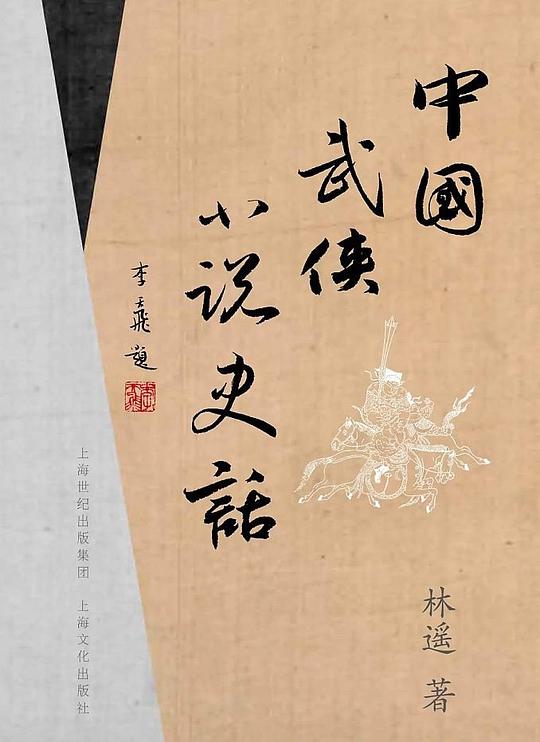 中國
武侠
小说史話
李飛題
林遥 著
上海世纪出版集团 上海文化出版社